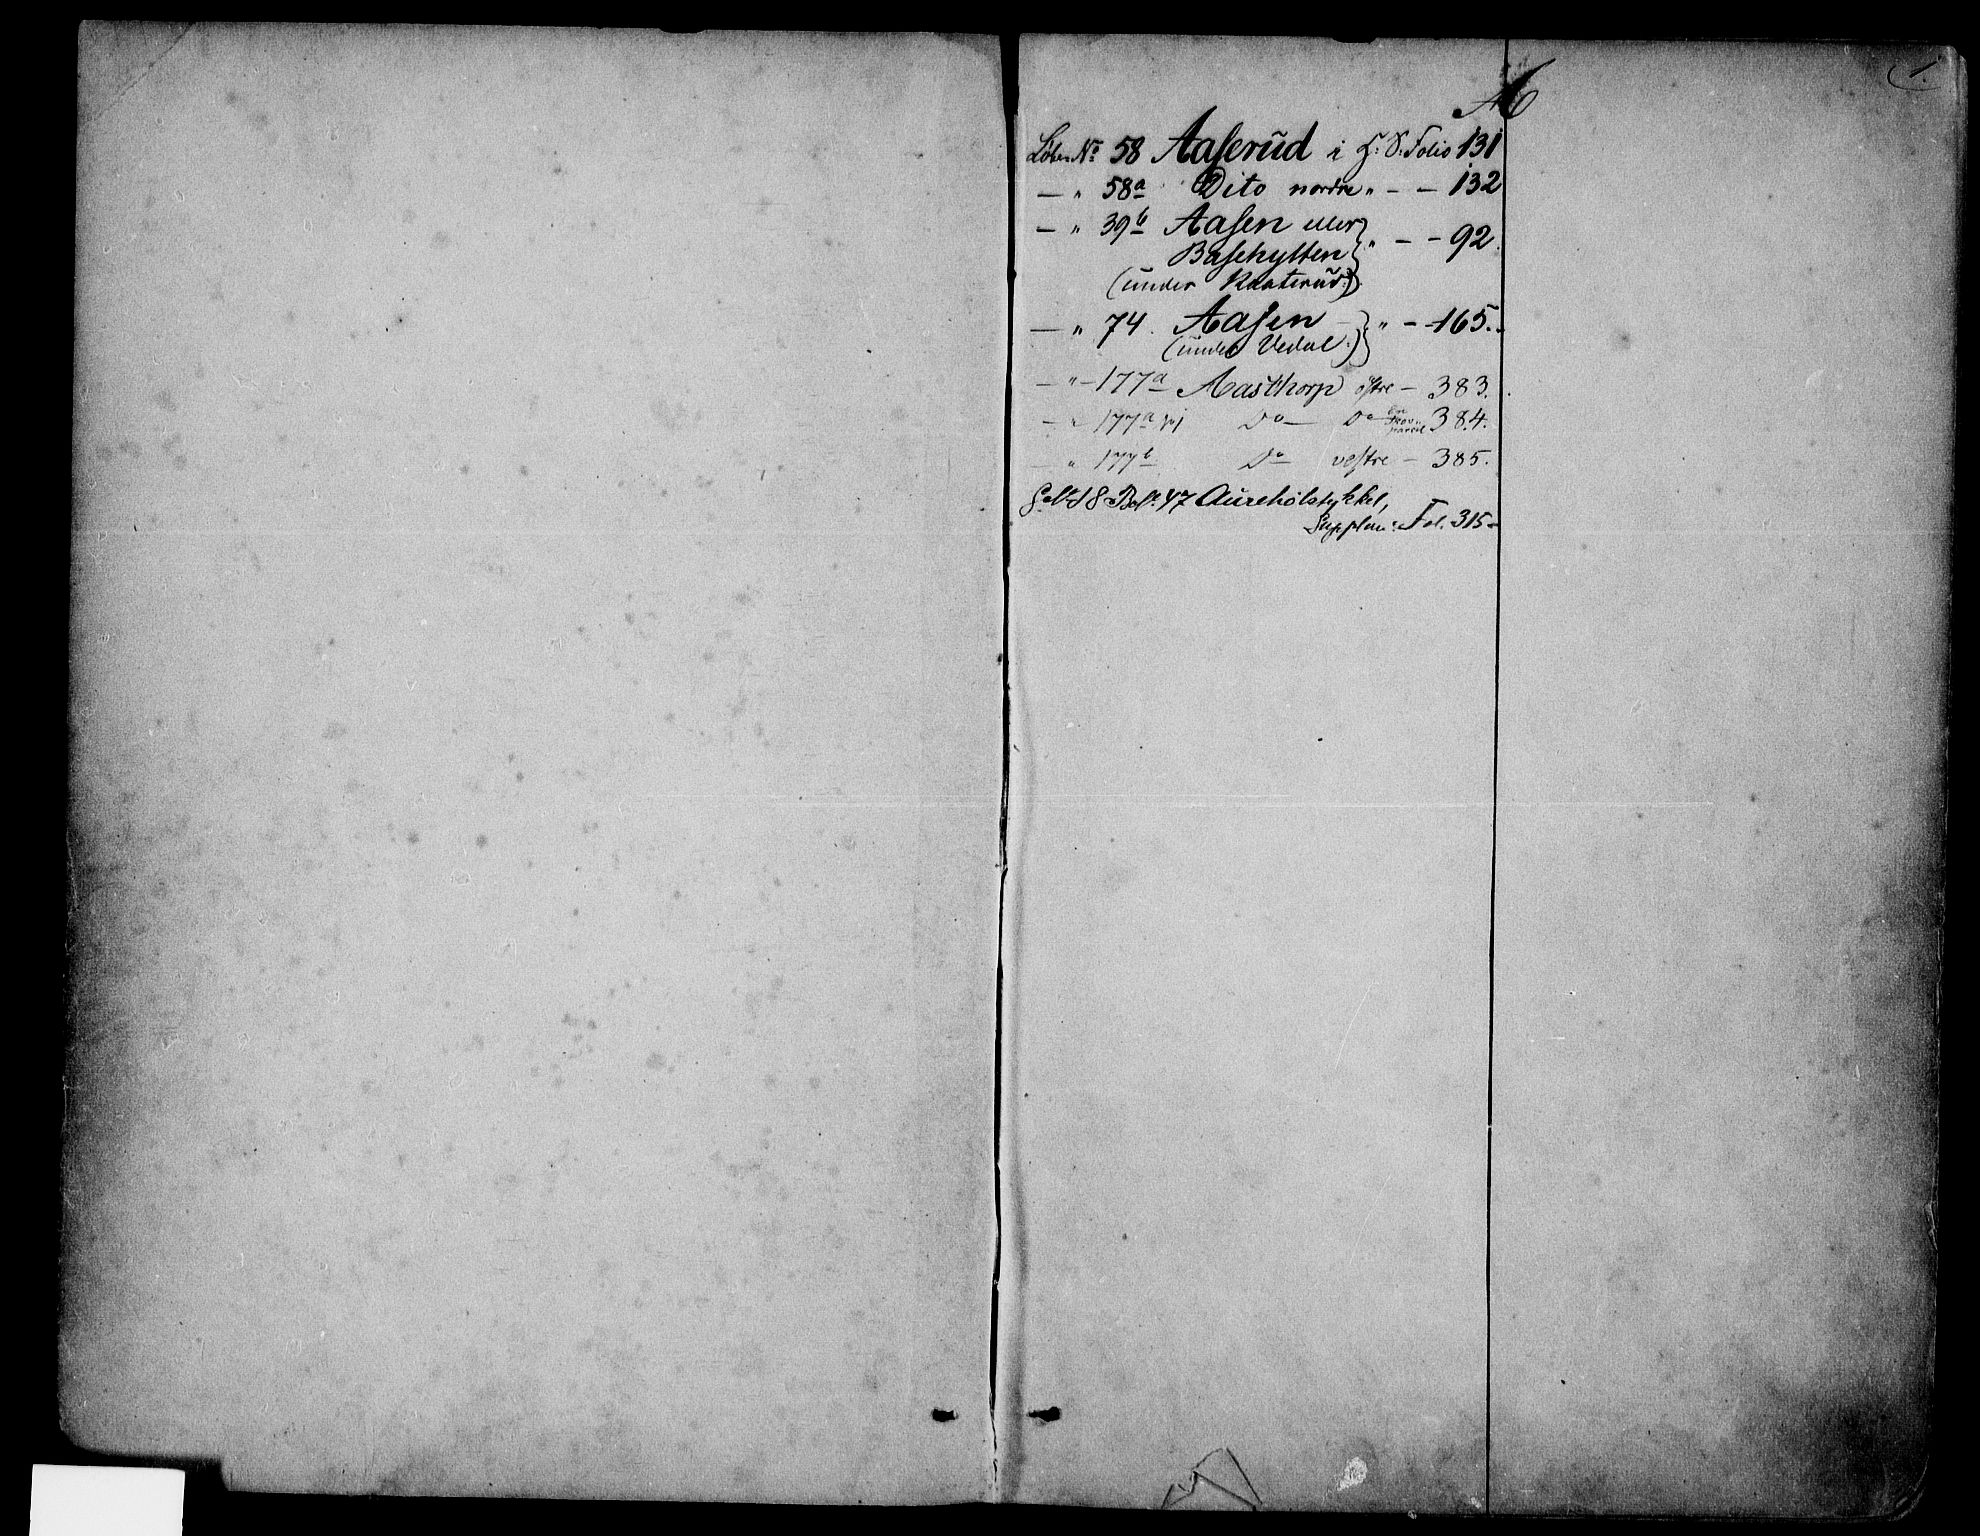 1.
A
Løbe No 58 Aaserud i H: S: Folio 131
— " 58a Dito nordre " - - 132
— " 39b Aasen eller
Basehytten " - - 92.
(under Knaterud:)
— " 74. Aasen - " - - 165.
(under Vedal:)
— " - 177a Aasthorp østre - 383.
— " 177a Do — Do en Skovparcel 384.
— " 177b Do vestre - 385.
18 47 Aureholstykket,
Supplem: Fol. 315